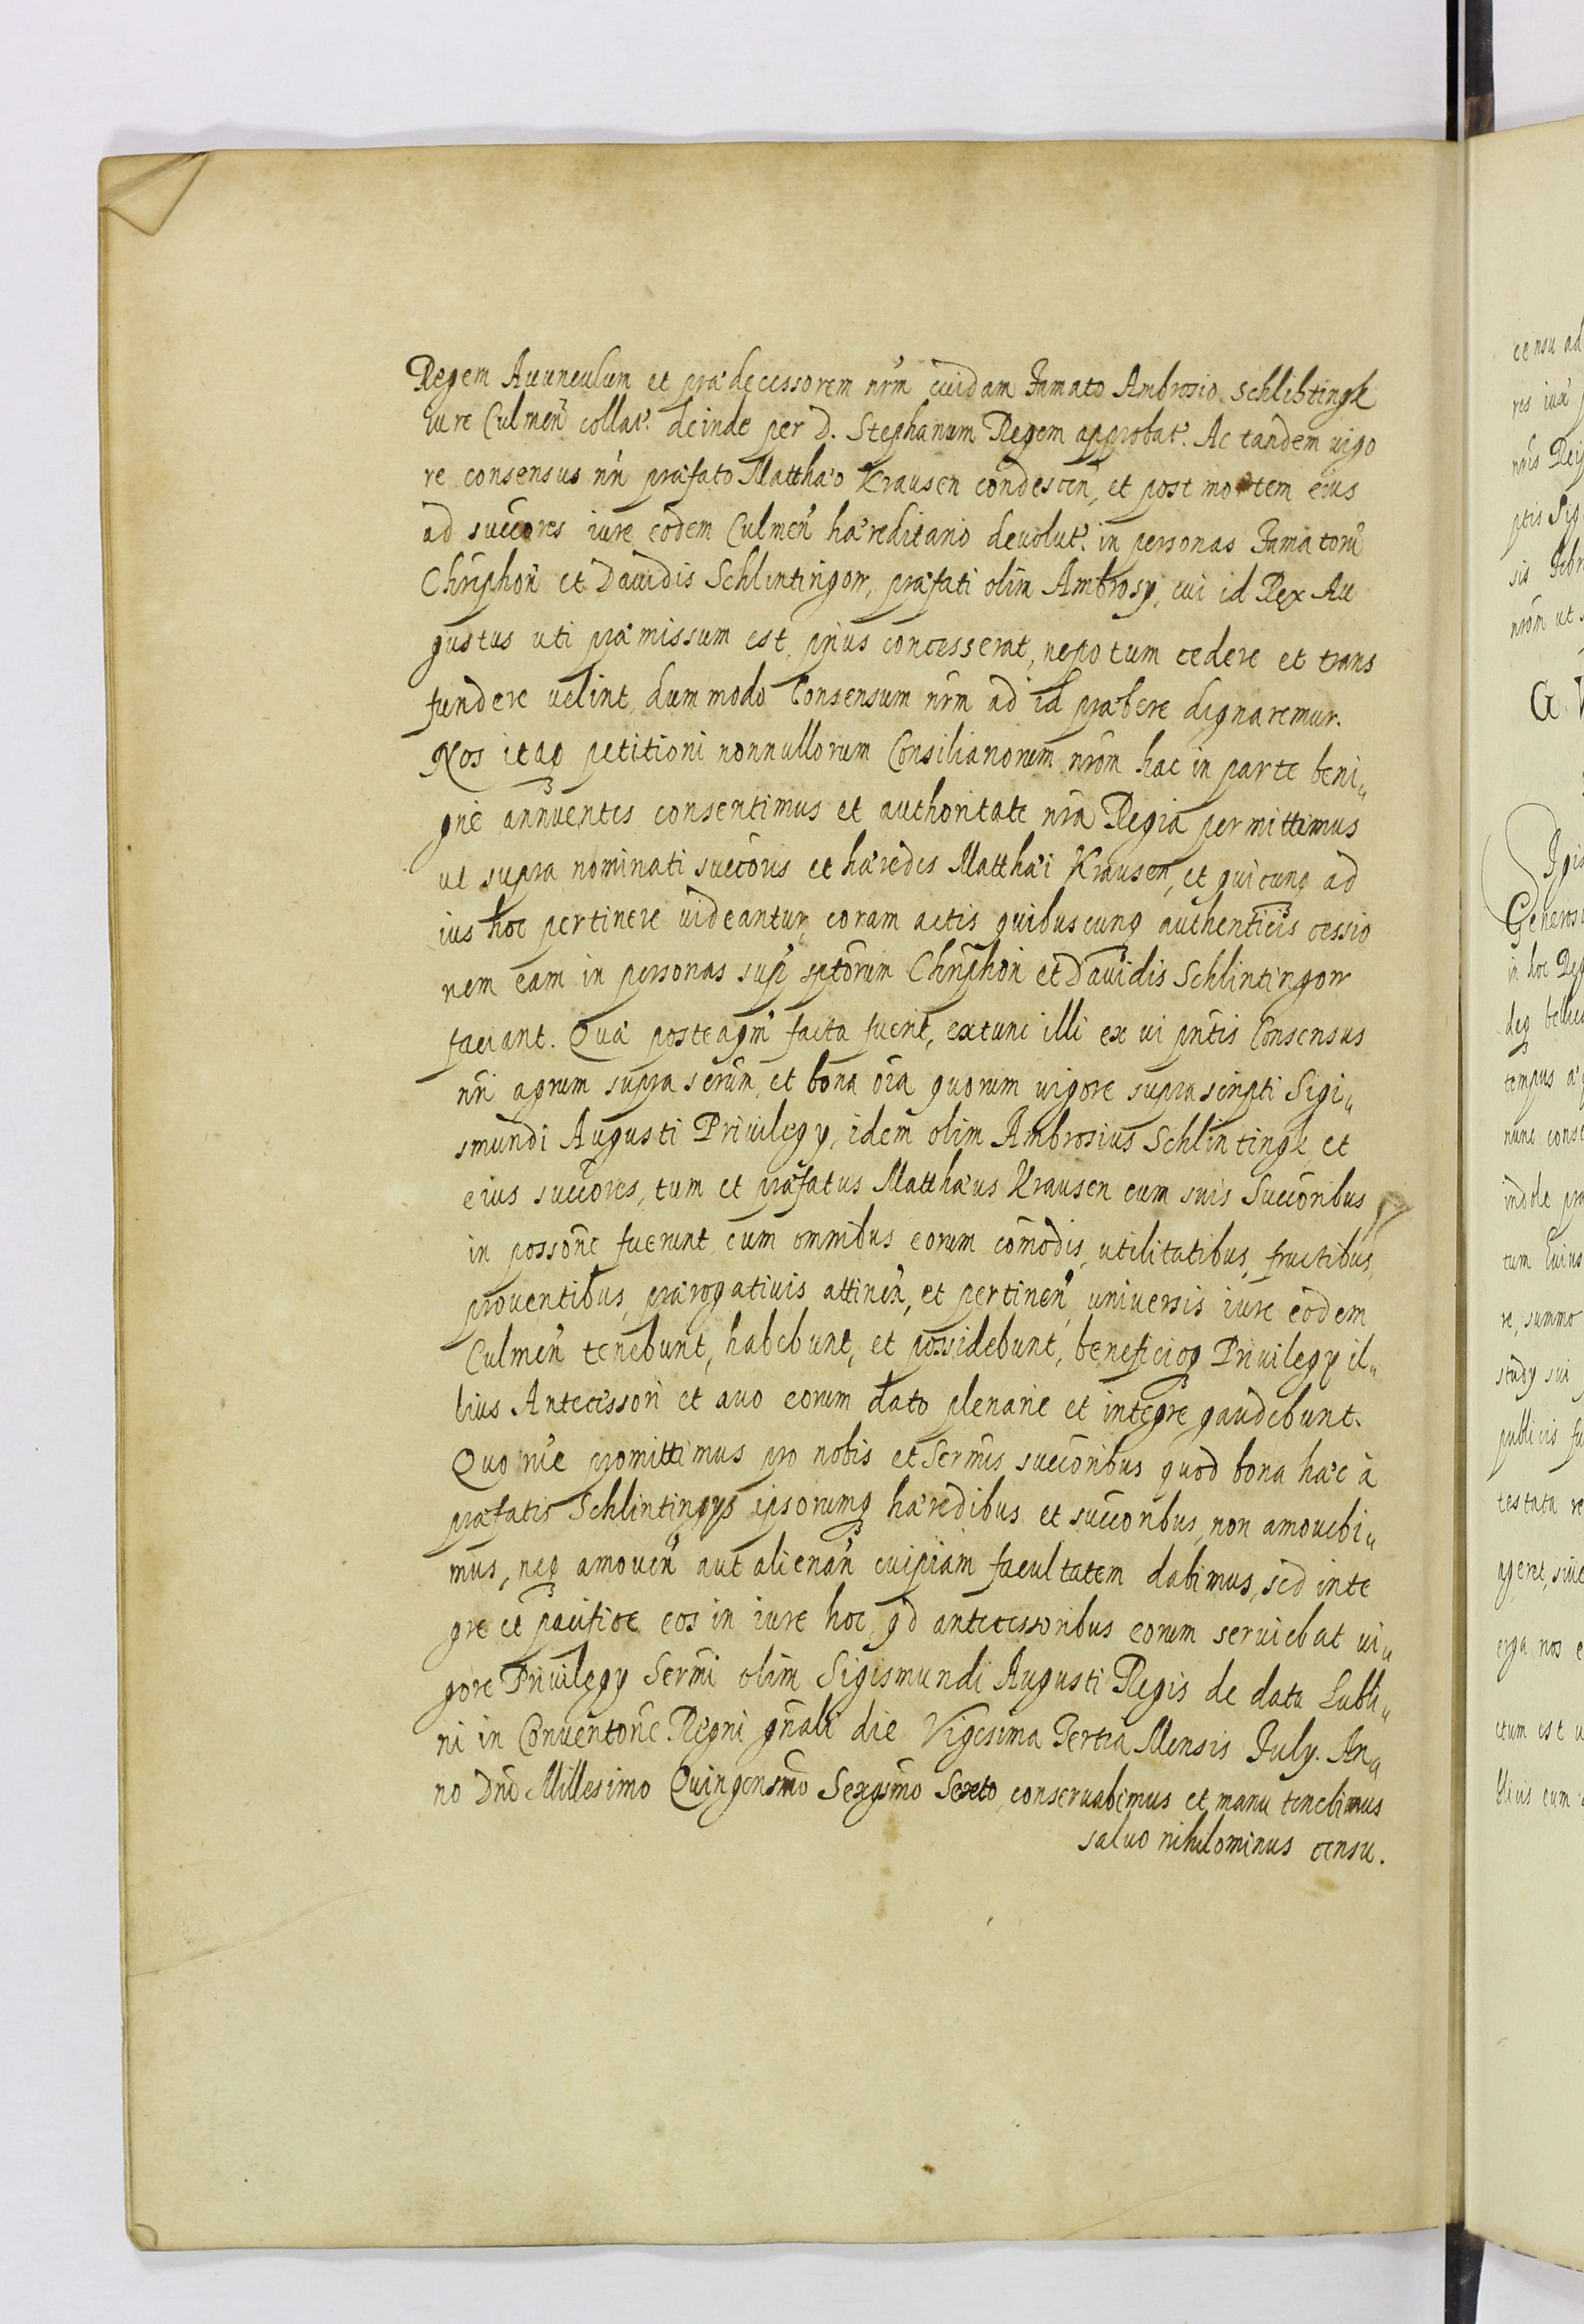 Regem Auunculum et prædecessorem nrm̃ cuidam Famato Ambrosio Schlihtingk
iure Culmeñ collat: deinde per D. Stephanum Regem approbat: Ac tandem uigo
re consensus nri præfato Matthæo Krausen condesceñ, et post mortem eius
ad succores iure eodem Culmeñ hæreditario deuolut: in personas Famatorũ
Chriphori et Dauidis Schlintingow, præfati olim Ambrosy, cui id Rex Au
gustus uti præmissum est, prius concesserat, nepotum cedere et trans
fundere uelint, dummodo Consensum nrm̃ ad id præbere dignaremur.
Nos itaq petitioni nonnullorum Consiliariorum nrõm hac in parte beni„
gnè annuentes consentimus et authoritate nrã Regia permittimus
ut supra nominati succores et hæredes Matthæi Krausen, et quicunq ad
ius hoc pertinere uideantur, coram actis quibuscunq authenticis cessio
nem eam in personas supσptorum Chriphori et Dauidis Schlintingow
faciant. Quâ posteaqm̃ facta fuerit, extunc illi ex ui pñtis Consensus
nri agrum supra scrũm, et bona oĩa quorum uigore suprascripti Sigi„
smundi Augusti Priuilegy, idem olim Ambrosius Schlintingk et
eius succores, tum et præfatus Matthæus Krausen cum suis Succoribus
in possone fuerunt, cum omnibus eorum comodis, utilitatibus, fructibus,
prouentibus, prærogatiuis attineñ, et pertineñ uniuersis iure eodem
Culmeñ tenebunt, habebunt, et possidebunt, beneficioq Priuilegy il„
lius Antecessori et auo eorum dato plenarie et integre gaudebunt.
Quo nie promittimus pro nobis et Sermis succoribus quod bona hæc à
præfatis Schlintingys ipsorumq hæredibus et succoribus, non amouebi„
mus, neq amoueñ aut alienañ cuipiam facultatem dabimus, sed inte
gre et pacifice eos in iure hoc, qd antecessoribus eorum seruiebat ui„
gore Priuilegy Sermi olim Sigismundi Augusti Regis de data Lubli„
ni in Conuentone Regni gñali die Vigesima Tertia Mensis July. An„
no Dni Millesimo Quingensimo Sexgsimo Sexto, conseruabimus et manu tenebimus
saluo nihilominus censu.